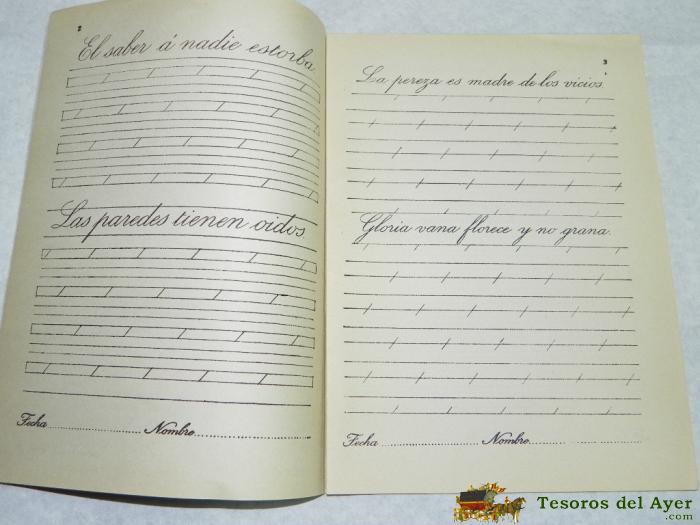 2
El saber á nadie estorba
Las paredes tienen oidos
Fecha.................... Nombre..........................
3
La pereza es madre de los vicios.
Gloria vana florece y no grana.
Fecha.................... Nombre..........................
Tesoros del Ayer
.com